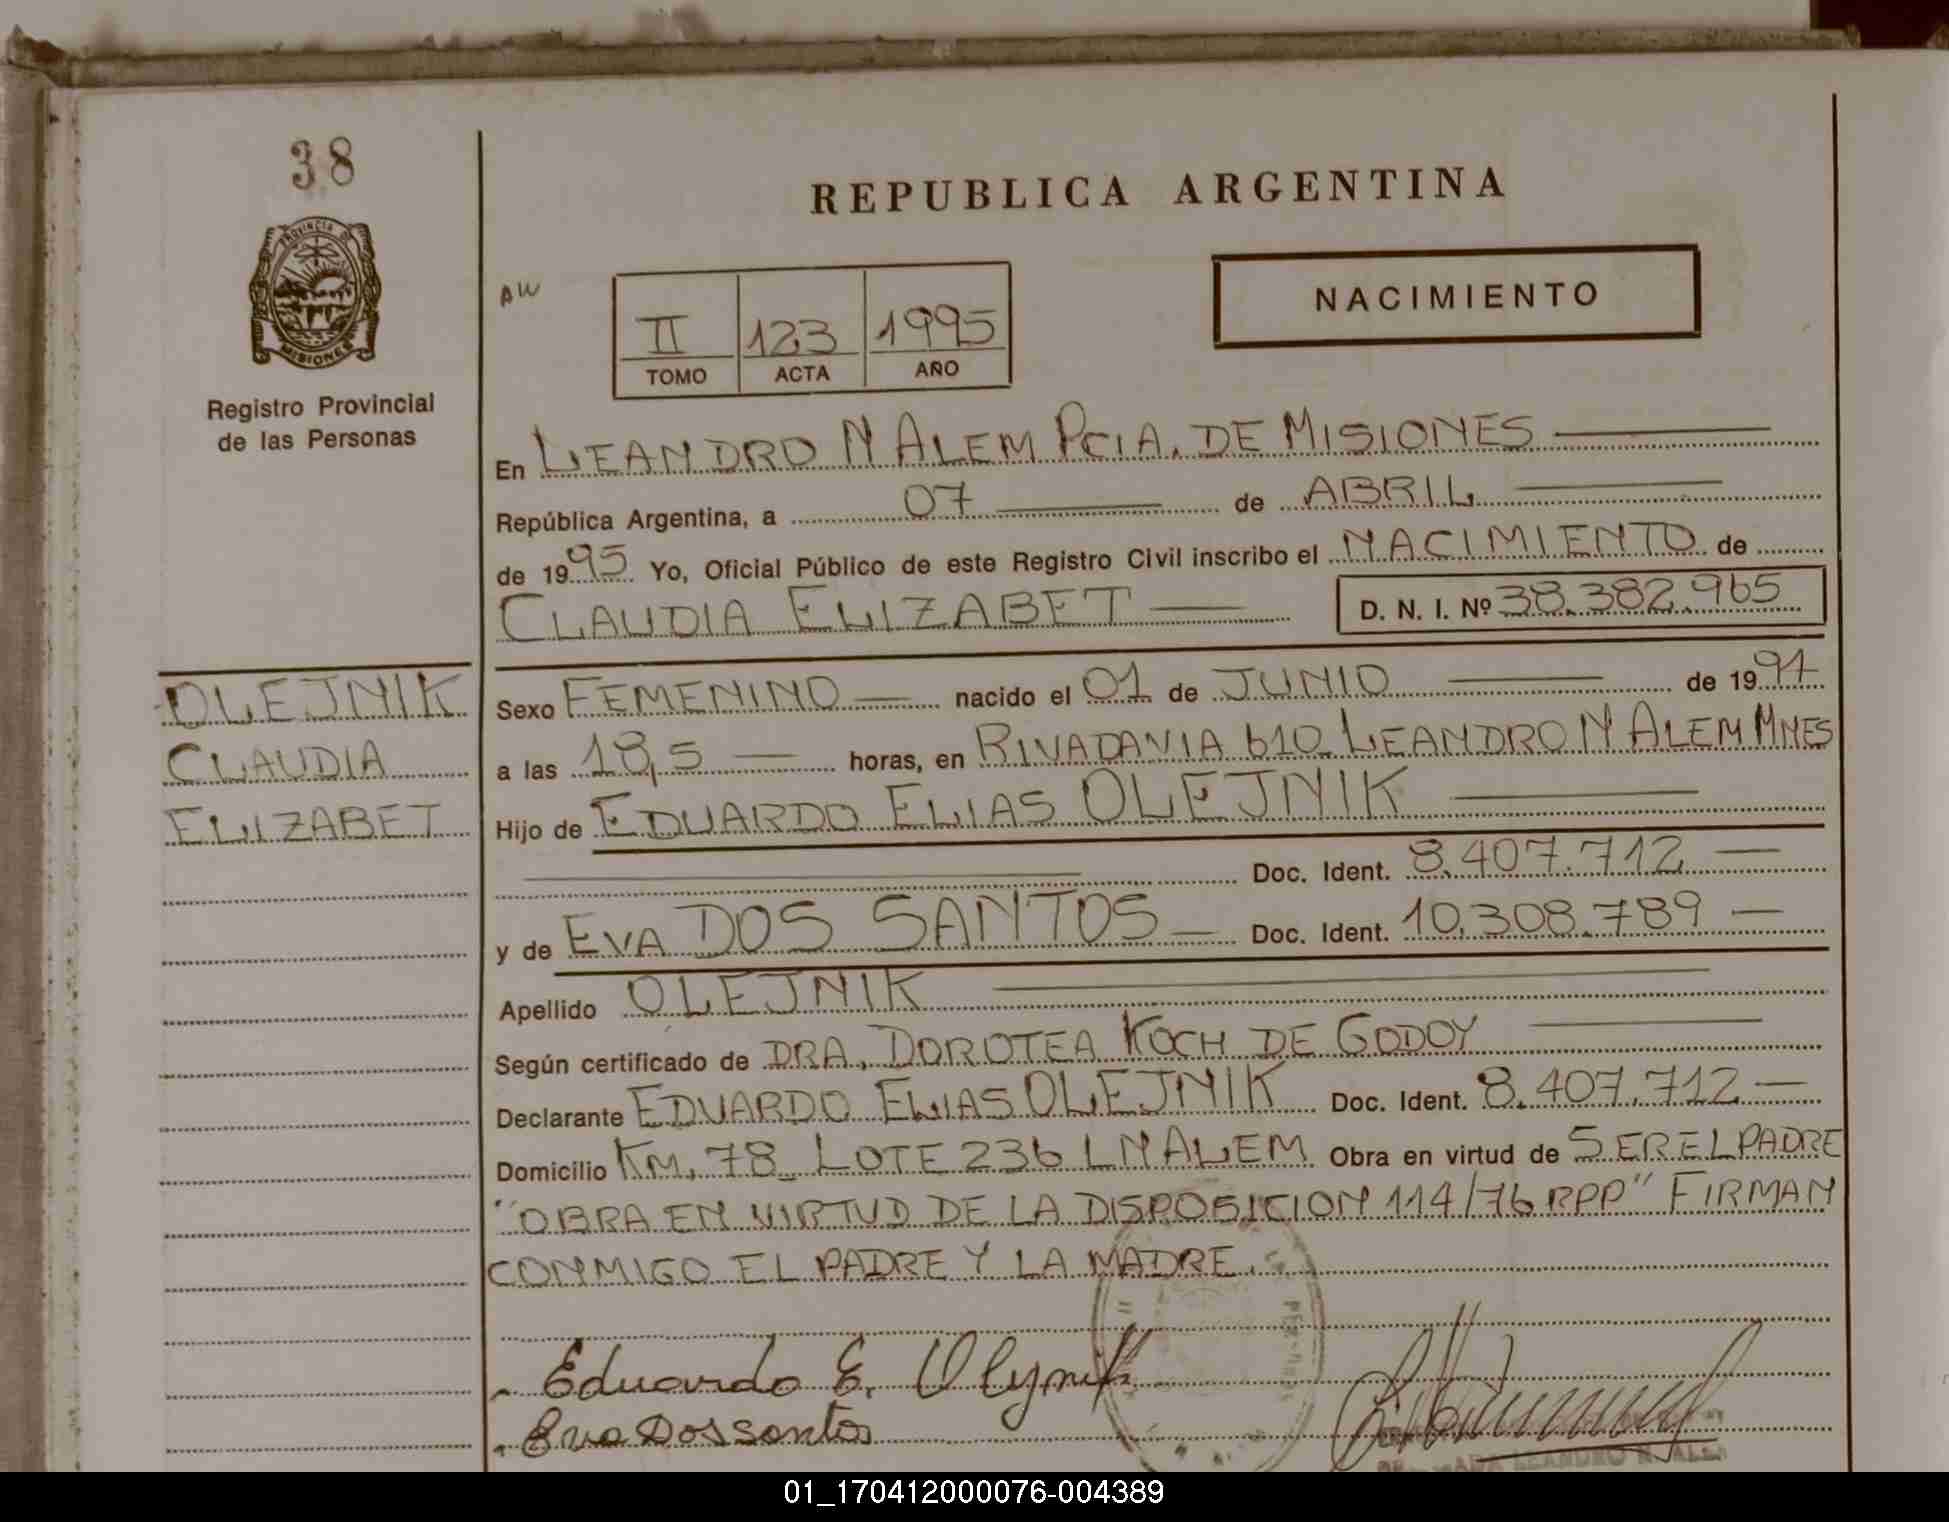 38
PROVINCIA DE
MISIONES
Registro Provincial
de las Personas
REPUBLICA ARGENTINA
AW
II 123 1995
TOMO ACTA AÑO
NACIMIENTO
En LEANDRO N ALEM PCIA. DE MISIONES
República Argentina, a 07 de ABRIL
de 1995 Yo, Oficial Público de este Registro Civil inscribo el NACIMIENTO de
CLAUDIA ELIZABET D. N. I. Nº 38.382.965
OLEJNIK
CLAUDIA
ELIZABET
Sexo FEMENINO nacido el 01 de JUNIO de 1994
a las 18,5 horas, en RIVADAVIA 610 LEANDRO N ALEM MNES
Hijo de EDUARDO ELIAS OLEJNIK
Doc. Ident. 8.407.712
y de EVA DOS SANTOS Doc. Ident. 10.308.789
Apellido OLEJNIK
Según certificado de DRA. DOROTEA KOCH DE GODOY
Declarante EDUARDO ELIAS OLEJNIK Doc. Ident. 8.407.712
Domicilio KM. 78 LOTE 236 L N ALEM Obra en virtud de SER EL PADRE
"OBRA EN VIRTUD DE LA DISPOSICION 114/76 RPP" FIRMAN
CONMIGO EL PADRE Y LA MADRE.
Eduardo E. Olejnik
Eva Dos santos
LEANDRO N. ALEM
01_170412000076-004389